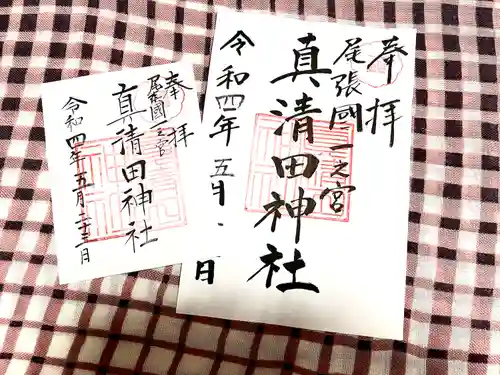 奉拝
尾張國一之宮
真清田神社
令和四年五月
日
奉拝
尾張國一之宮
真清田神社
令和四年五月二十三日